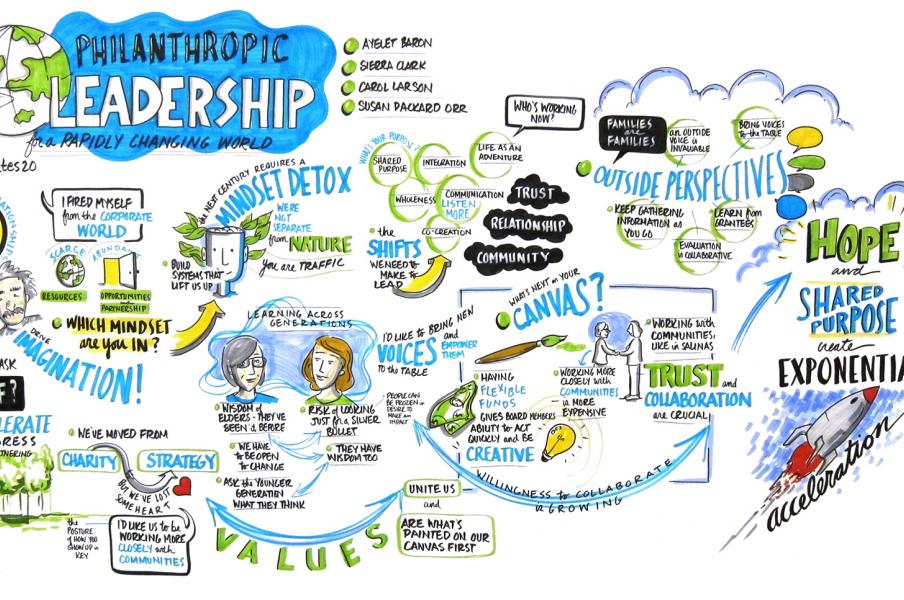 PHILANTHROPIC
LEADERSHIP
for a RAPIDLY CHANGING WORLD
AYELET BARON
SIERRA CLARK
CAROL LARSON
SUSAN PACKARD ORR
I FIRED MYSELF
from the CORPORATE
WORLD
SCARCE
ABUNDANT
RESOURCES
OPPORTUNITIES
PARTNERSHIP
WHICH MINDSET
are YOU IN?
DRIVE
IMAGINATION!
ASK
the NEXT CENTURY REQUIRES A
MINDSET DETOX
WE'RE
NOT
SEPARATE
from NATURE
you are TRAFFIC
BUILD
SYSTEMS THAT
LIFT US UP
WHAT'S YOUR PURPOSE?
SHARED
PURPOSE
INTEGRATION
LIFE AS AN
ADVENTURE
WHO'S WORKING
NOW?
WHOLENESS
COMMUNICATION
LISTEN
MORE
CO-CREATION
TRUST
RELATIONSHIP
COMMUNITY
the
SHIFTS
WE NEED to
MAKE to
LEAD
FAMILIES
are
FAMILIES
an OUTSIDE
VOICE is
INVALUABLE
BRING VOICES
to the TABLE
OUTSIDE PERSPECTIVES
KEEP GATHERING
INFORMATION as
YOU GO
LEARN from
GRANTEES!
EVALUATION
is COLLABORATIVE
HOPE
and
SHARED
PURPOSE
create
EXPONENTIA
acceleration
LEARNING ACROSS
GENERATIONS
WISDOM of
ELDERS - THEY'VE
BEEN a BEFORE
RISK of LOOKING
JUST for a SILVER
BULLET
WE HAVE
to BE OPEN
to CHANGE
THEY HAVE
WISDOM TOO
ASK the YOUNGER
GENERATION
WHAT THEY THINK
I'D LIKE to BRING NEW
VOICES and
EMPOWER
THEM
to the TABLE
PEOPLE CAN
BE FROZEN in
DESIRE to
MAKE an
IMPACT
WHAT'S NEXT on YOUR
CANVAS?
HAVING
FLEXIBLE
FUNDS
GIVES BOARD MEMBERS
ABILITY to ACT
QUICKLY and BE
CREATIVE
WORKING MORE
CLOSELY with
COMMUNITIES
is MORE
EXPENSIVE
WORKING with
COMMUNITIES,
LIKE in SALINAS
TRUST and
COLLABORATION
are CRUCIAL
WILLINGNESS to COLLABORATE
is GROWING
WE'VE MOVED FROM
CHARITY
STRATEGY
BUT WE'VE LOST
SOME HEART
the
POSTURE
of HOW YOU
SHOW UP is
KEY
I'D LIKE US to be
WORKING MORE
CLOSELY with
COMMUNITIES
VALUES
UNITE US
and
ARE WHAT'S
PAINTED on OUR
CANVAS FIRST